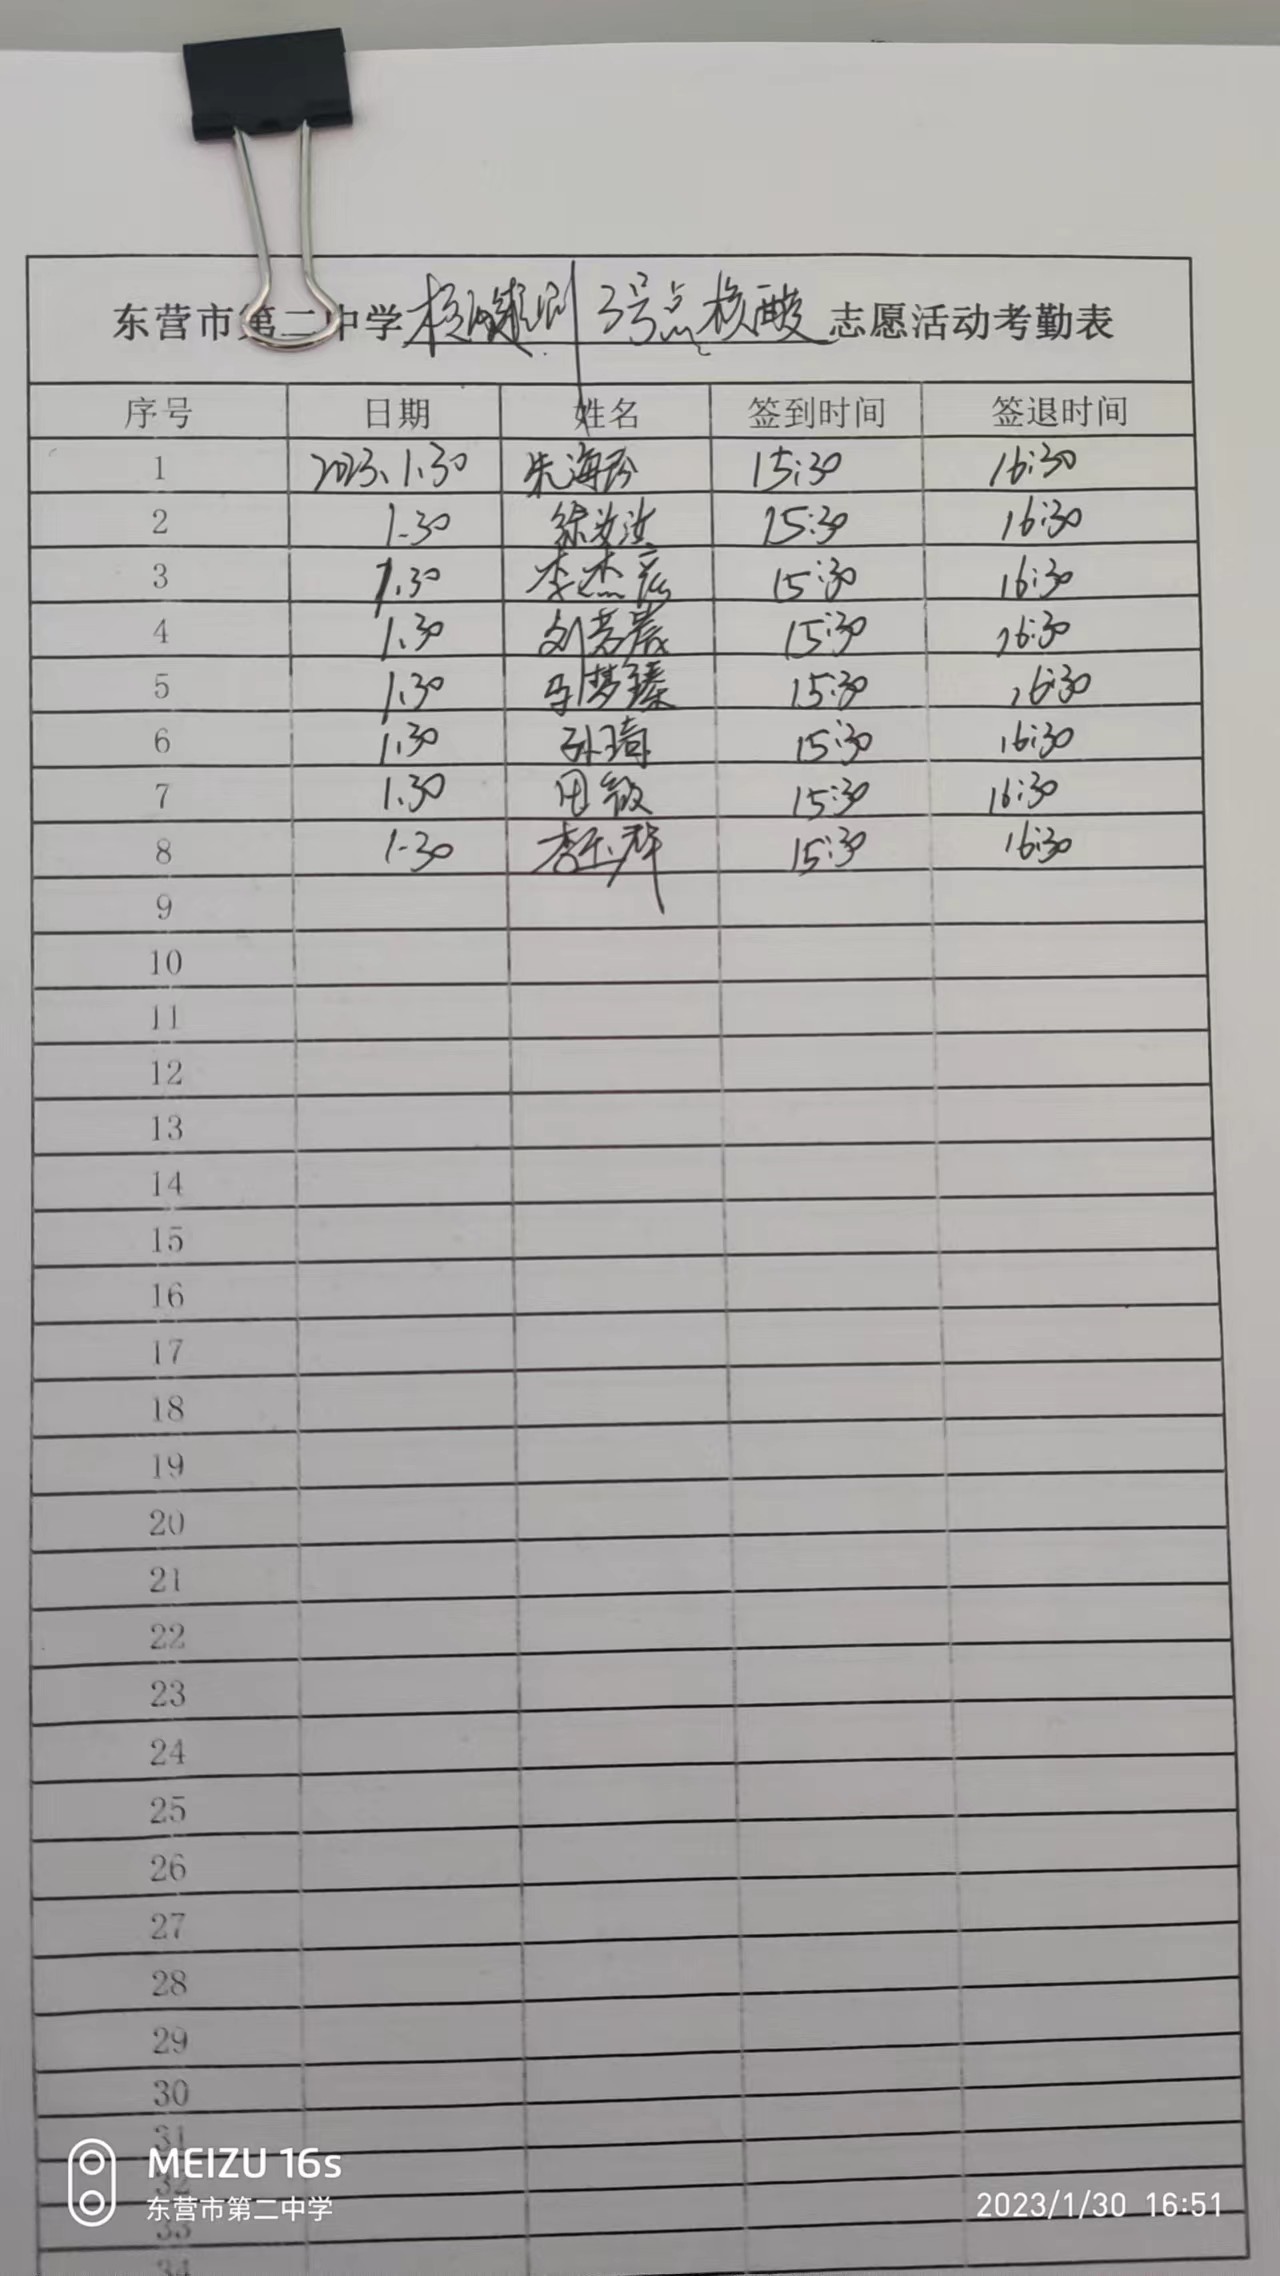 东营市第二中学核酸检测 3号点核酸志愿活动考勤表
序号 日期 姓名 签到时间 签退时间
1 2023.1.30 朱海玲 15:30 16:30
2 1.30 徐汝汝 15:30 16:30
3 1.30 李杰 15:30 16:30
4 1.30 刘芳宸 15:30 16:30
5 1.30 马梦臻 15:30 16:30
6 1.30 孙琦 15:30 16:30
7 1.30 田敏 15:30 16:30
8 1.30 李玉群 15:30 16:30
9
10
11
12
13
14
15
16
17
18
19
20
21
22
23
24
25
26
27
28
29
30
31
32
33
34
MEIZU 16s
东营市第二中学
2023/1/30 16:51